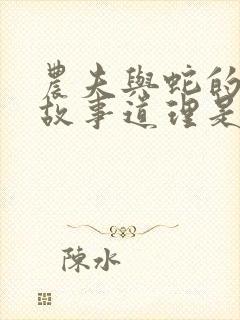 農夫與蛇的
故事道理是
陳水